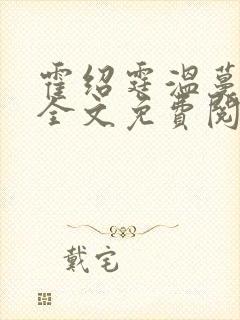 霍绍霆温蔓
全文免费阅
戴宅